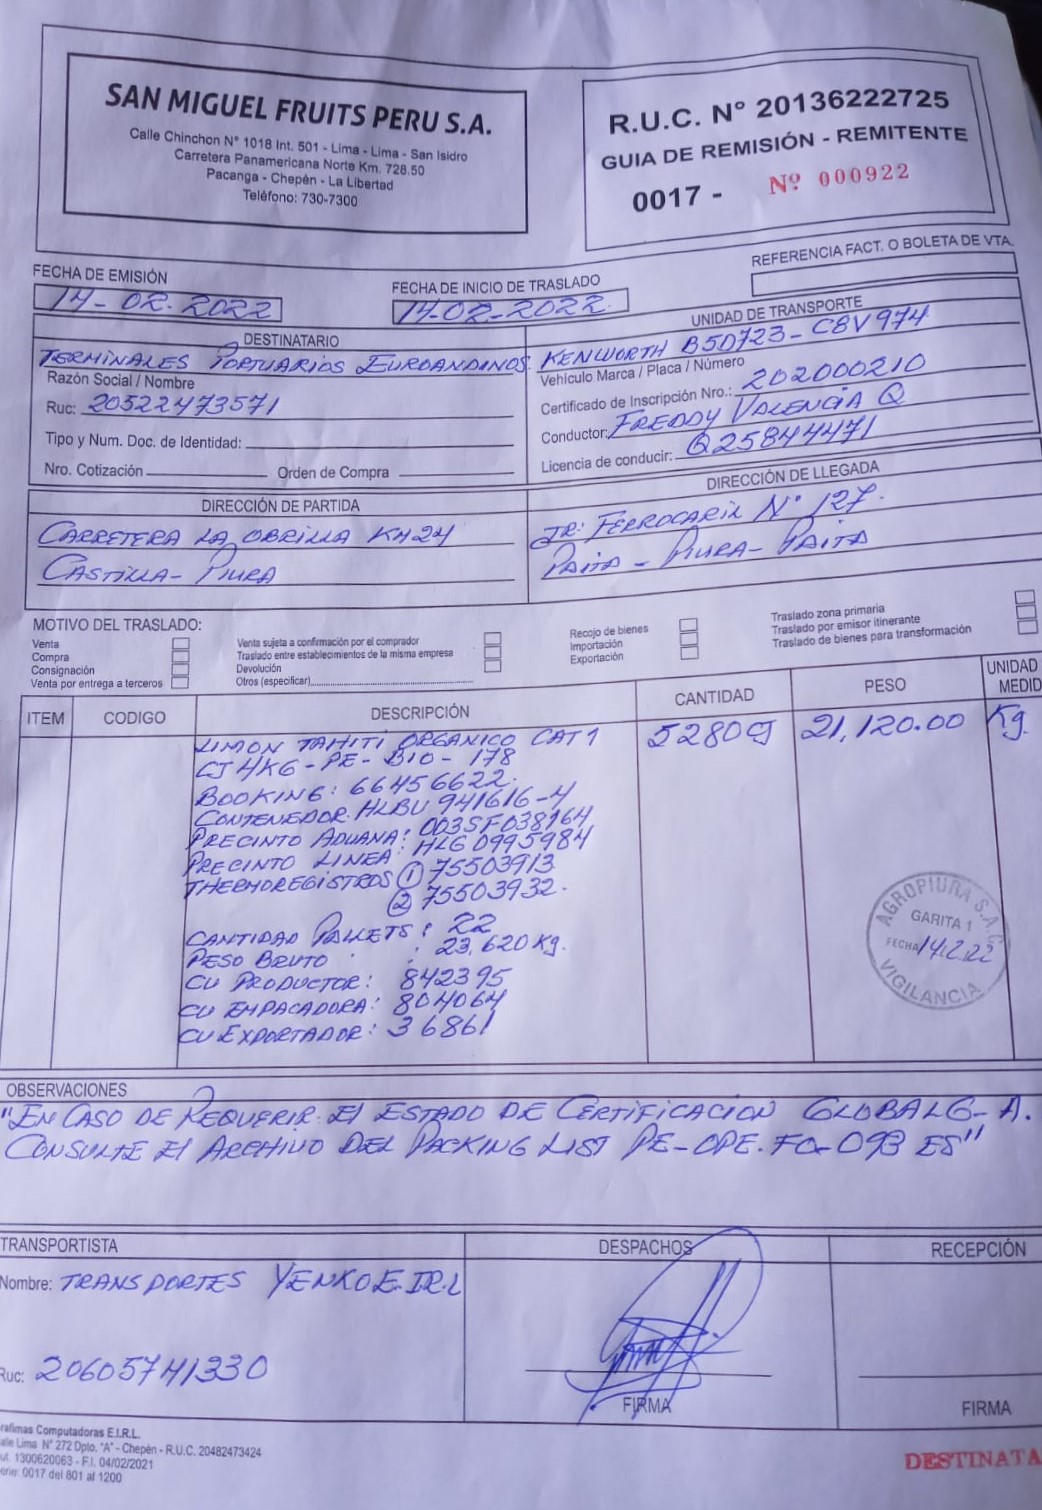 SAN MIGUEL FRUITS PERU S.A.
Calle Chinchon N° 1018 Int. 501 - Lima - Lima - San Isidro
Carretera Panamericana Norte Km. 728.50
Pacanga - Chepén - La Libertad
Teléfono: 730-7300
R.U.C. N° 20136222725
GUIA DE REMISIÓN - REMITENTE
0017 - Nº 000922
REFERENCIA FACT. O BOLETA DE VTA.
FECHA DE EMISIÓN
14-02-2022
FECHA DE INICIO DE TRASLADO
14-02-2022
DESTINATARIO
TERMINALES PORTUARIOS EUROANDINOS
Razón Social / Nombre
Ruc: 20522473571
Tipo y Num. Doc. de Identidad:
Nro. Cotización Orden de Compra
UNIDAD DE TRANSPORTE
KENWORTH B5D723-C8V974
Vehículo Marca / Placa / Número
Certificado de Inscripción Nro.: 202000210
Conductor: FREDDY VALENCIA Q
Licencia de conducir: Q25844471
DIRECCIÓN DE PARTIDA
CARRETERA LA OBRILLA KM24
CASTILLA - PIURA
DIRECCIÓN DE LLEGADA
JR: FERROCARIL N° 127.
PAITA - PIURA - PAITA
MOTIVO DEL TRASLADO:
Venta
Compra
Consignación
Venta por entrega a terceros
Venta sujeta a confirmación por el comprador
Traslado entre establecimientos de la misma empresa
Devolución
Otros (especificar)
Recojo de bienes
Importación
Exportación
Traslado zona primaria
Traslado por emisor itinerante
Traslado de bienes para transformación
ITEM CODIGO DESCRIPCIÓN CANTIDAD PESO UNIDAD MEDID
LIMON TAHITI ORGANICO CAT 1 5280CJ 21,120.00 Kg.
CJ 4KG-PE-BIO-178
BOOKING: 66456622.
CONTENEDOR: HLBU 941616-4
PRECINTO ADUANA: 003SF038164
PRECINTO LINEA: HLG0995984
THERMOREGISTROS ① 75503913
② 75503932.
CANTIDAD PALLETS: 22
PESO BRUTO : 23,620 Kg.
CU PRODUCTOR: 842395
CU EMPACADORA: 804064
CU EXPORTADOR: 36861
AGROPIURA S.A.C
GARITA 1
FECHA 14.2.22
VIGILANCIA
OBSERVACIONES
"EN CASO DE REQUERIR El ESTADO DE CERTIFICACION GLOBALG-A.
CONSULTE El ARCHIVO DEL PACKING LIST PE-OPE.FO-093 ES"
TRANSPORTISTA
Nombre: TRANSPORTES YENKO E.I.R.L
Ruc: 20605741330
DESPACHOS
FIRMA
RECEPCIÓN
FIRMA
rafimas Computadoras E.I.R.L.
alle Lima N° 272 Dpto. "A" - Chepén - R.U.C. 20482473424
ut. 1300620063 - F.I. 04/02/2021
erie: 0017 del 801 al 1200
DESTINATA